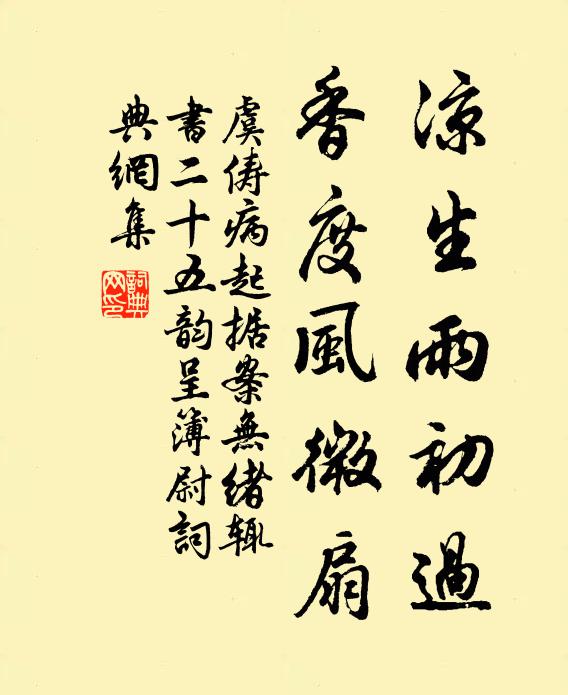 凉生雨初過
香度風微扇
虞儔病起据案無緒輒
書二十五韵呈簿尉詞
典網集
詞典網印